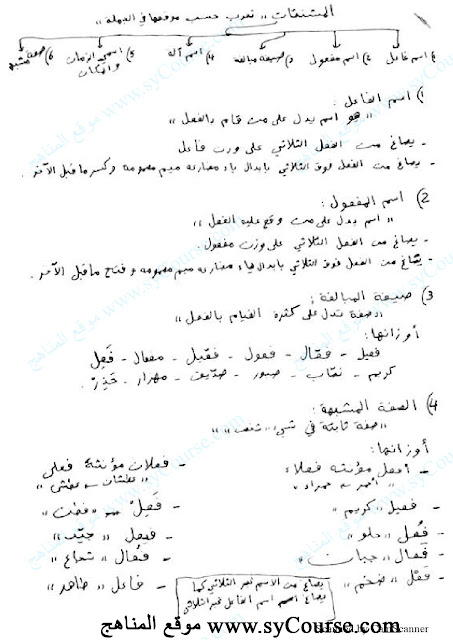 المشتقات ,, تعرب حسب موقعها في الجملة ,,
1) اسم فاعل 2) اسم مفعول 3) صيغة مبالغة 4) اسم آلة 5) اسمي الزمان والمكان 6) صفة مشبهة
1) اسم الفاعل :
,, هو اسم يدل على من قام بالفعل ,,
- يصاغ من الفعل الثلاثي على وزن فاعل
- يصاغ من الفعل فوق الثلاثي بابدال ياء مضارعه ميم مضمومه وكسر ما قبل الآخر .
2) اسم المفعول :
,, اسم يدل على من وقع عليه الفعل ,,
- يصاغ من الفعل الثلاثي على وزن مفعول .
- يصاغ من الفعل فوق الثلاثي بابدال ياء مضارعه ميم مضمومه و فتح ما قبل الآخر .
3) صيغة المبالغة :
,, صفة تدل على كثرة القيام بالفعل ,,
أوزانها :
فعيل - فعّال - فعول - فعّيل - مفعال - فَعِل
كريم - نصّاب - صبور - صدّيق - مهرار - حَذِرْ .
4) الصفة المشبهة :
,, صفة ثابتة في شيء ,,
أوزانها :
- أفعل مؤنثه فعلاء
,, أحمر - حمراء ,,
- فعيل ,, كريم ,,
- فُعل ,, حلو ,,
- فَعال ,, جبان ,,
- فَعْل ,, ضخم ,,
- فعلان مؤنثه فعلى
,, عطشان - عطشى ,,
- فَعِلْ ,, فطن ,,
- فيعل ,, جيّد ,,
- فُعال ,, شجاع ,,
- فاعل ,, طاهر ,,
يصاغ من الاسم غير الثلاثي كما
يصاغ اسم الفاعل غير الثلاثي
موقع المناهج www.syCourse.com